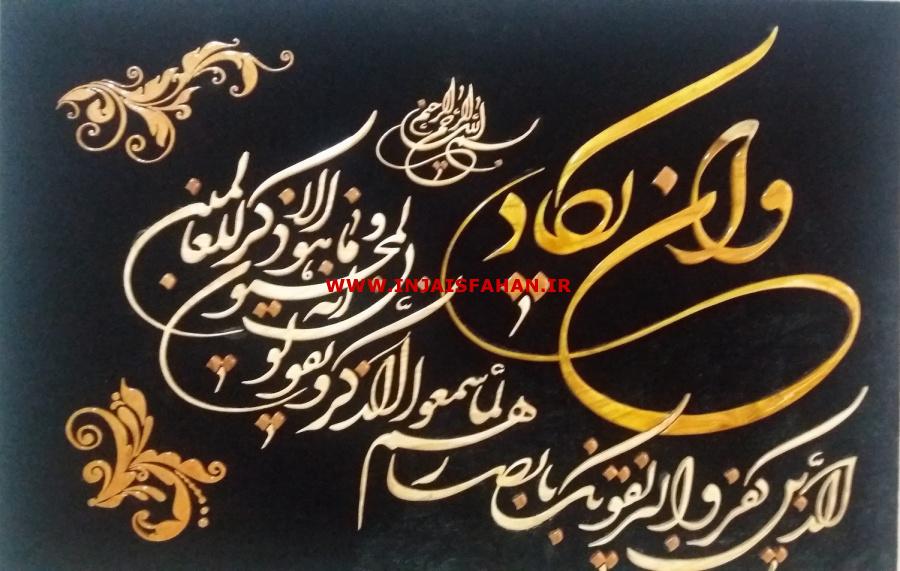 بسم الله الرحمن الرحیم
وان یکاد
الذین کفروا لیزلقونک بابصارهم
لما سمعوا الذکر و یقولون
انه لمجنون
و ما هو الا ذکر للعالمین
WWW.INJAISFAHAN.IR